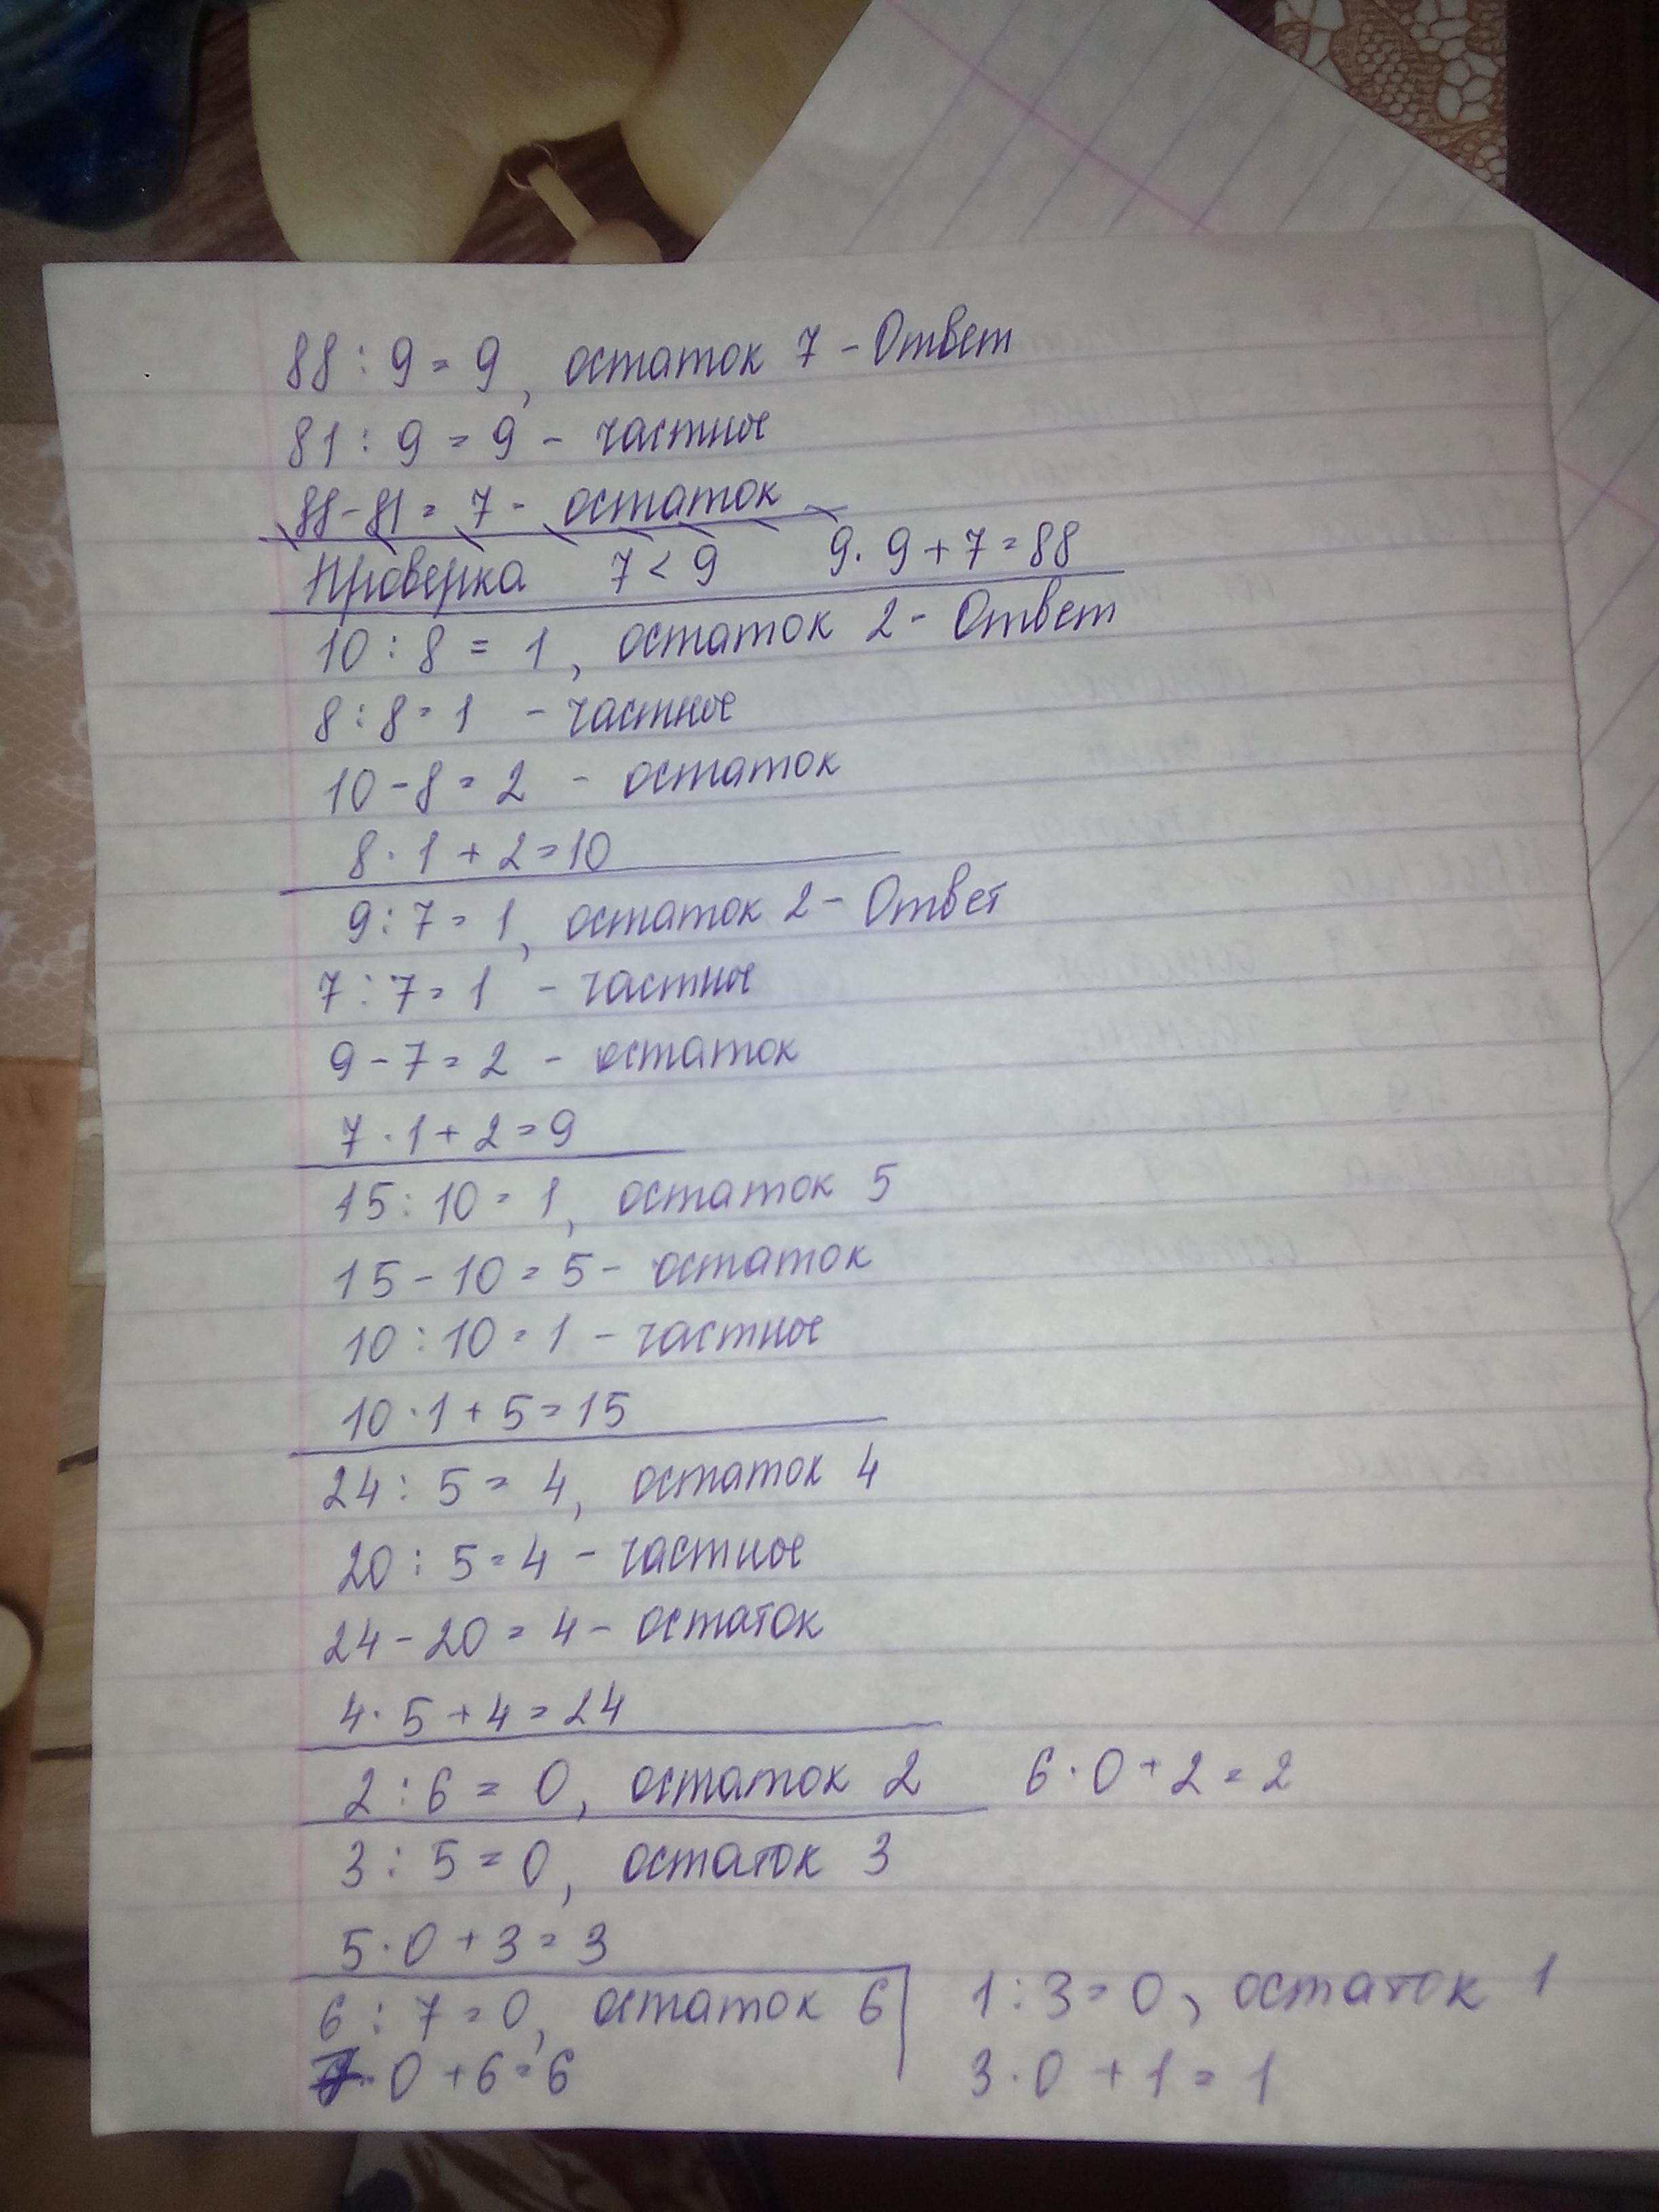 88 : 9 = 9, остаток 7 - Ответ
81 : 9 = 9 - частное
88 - 81 = 7 - остаток
Проверка 7 < 9 9 · 9 + 7 = 88
10 : 8 = 1, остаток 2 - Ответ
8 : 8 = 1 - частное
10 - 8 = 2 - остаток
8 · 1 + 2 = 10
9 : 7 = 1, остаток 2 - Ответ
7 : 7 = 1 - частное
9 - 7 = 2 - остаток
7 · 1 + 2 = 9
15 : 10 = 1, остаток 5
15 - 10 = 5 - остаток
10 : 10 = 1 - частное
10 · 1 + 5 = 15
24 : 5 = 4, остаток 4
20 : 5 = 4 - частное
24 - 20 = 4 - остаток
4 · 5 + 4 = 24
2 : 6 = 0, остаток 2 6 · 0 + 2 = 2
3 : 5 = 0, остаток 3
5 · 0 + 3 = 3
6 : 7 = 0, остаток 6
· 0 + 6 = 6
1 : 3 = 0, остаток 1
3 · 0 + 1 = 1